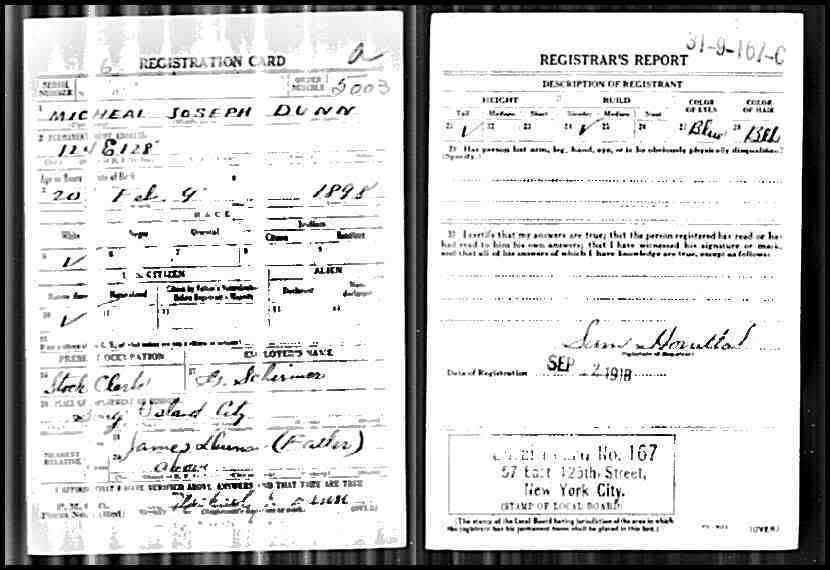 REGISTRATION CARD
SERIAL NUMBER
ORDER NUMBER 5003
1 MICHEAL JOSEPH DUNN
2 PERMANENT HOME ADDRESS
124 E 128
Age in Years Date of Birth
20 Feb. 9 1898
RACE
White Negro Oriental Indian
Citizen
5 ✓ 6 7 8 9
U. S. CITIZEN ALIEN
Native Born Naturalized Citizen by Father's Naturalization Before Registrant's Majority Declarant Non-declarant
10 ✓ 11 12 13 14
15
If not a citizen of the U. S., of what nation are you a citizen or subject?
PRESENT OCCUPATION EMPLOYER'S NAME
16 Stock Clerk 17 G. Schirmer
18 PLACE OF EMPLOYMENT OR BUSINESS
Long Island City
NEAREST RELATIVE
19 James Dunn (Father)
20 above
I AFFIRM THAT I HAVE VERIFIED ABOVE ANSWERS AND THAT THEY ARE TRUE
P. M. G. O.
Form No. 1 (Red) (OVER)
REGISTRAR'S REPORT
31-9-167-C
DESCRIPTION OF REGISTRANT
HEIGHT BUILD COLOR OF EYES COLOR OF HAIR
Tall Medium Short Slender Medium Stout
21 ✓ 22 23 24 ✓ 25 26 27 Blue 28
29 Has person lost arm, leg, hand, eye, or is he obviously physically disqualified?
(Specify.)
30 I certify that my answers are true; that the person registered has read or has
had read to him his own answers; that I have witnessed his signature or mark,
and that all of his answers of which I have knowledge are true, except as follows:
(Signature of Registrar)
Date of Registration SEP 12 1918
No. 167
57 East 125th Street,
New York City.
(STAMP OF LOCAL BOARD)
(The stamp of the Local Board having jurisdiction of the area in which
the registrant has his permanent home shall be placed in this box.)
(OVER)